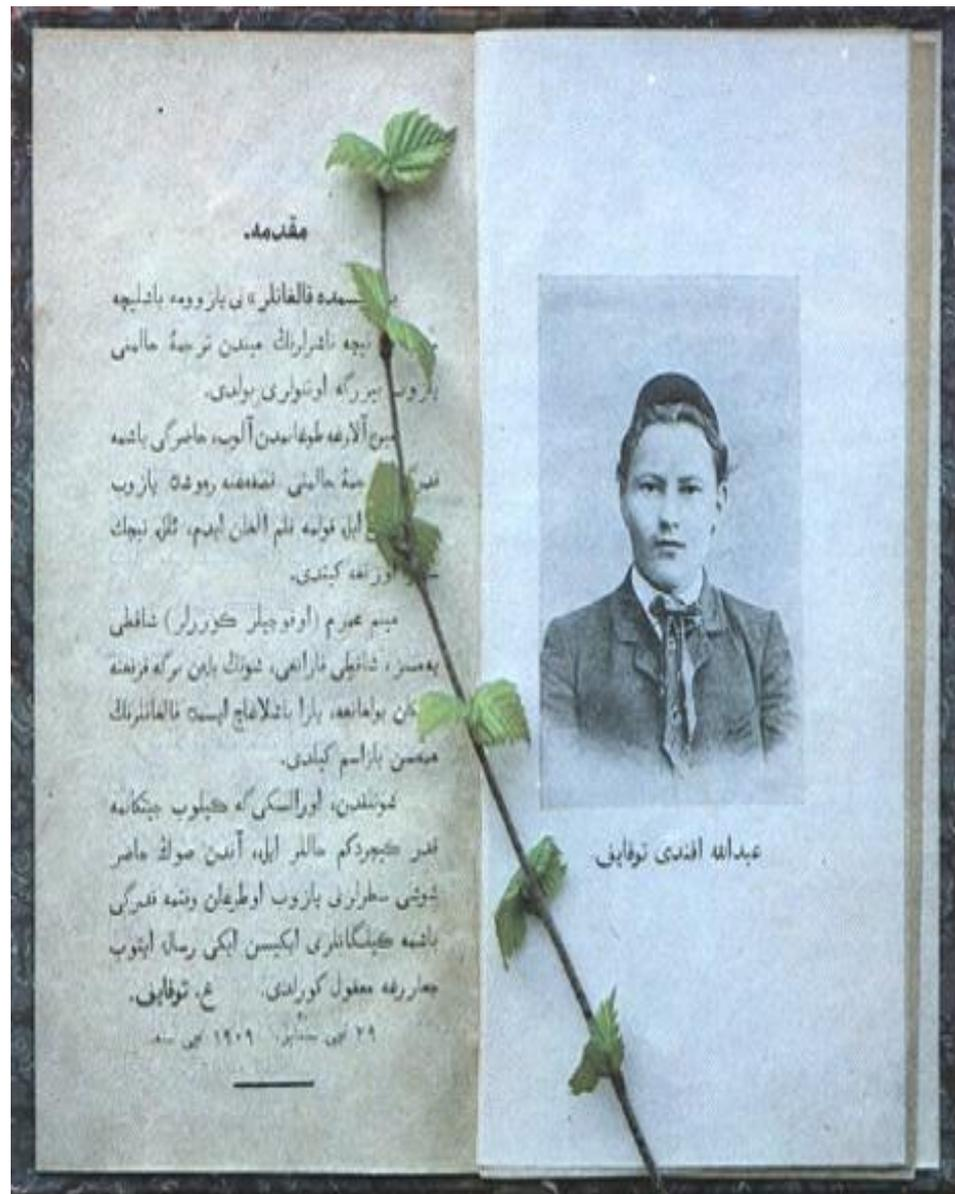 مقدمه.
«قالغانلر» نی یازوومه باشلیچه
نیچه ناشرلرنڭ میندن ترجمهٔ حالمنی
یازوب بیررگه اوتنولری بولدی.
مین آلارغه طوغانمدن آلوب، حاضرگی یاشمه
قدر حالمنی یازوب
ایله قولیمه قلم آلغان ایدم، لکن نیچك
کیتدی.
مینم عمرم (اوقوچیلر کوررلر) شاقطی
یەمسز، شاقطی قارانغی، شونڭ بلەن برگه
بولغانغه، یازا باشلاغاچ ایسمده قالغانلرنڭ
همەسن یازاسم کیلدی.
شونلقدن، اورالسکی گه کیلوب جیتکانمه
قدر کیچردکم حاللر ایله، آندن صوڭ حاضر
شوشی سطرلرنی یازوب اوطرغان وقتمه قدرگی
باشمه کیلگانلری ایکیسن ایکی رساله ایتوب
چغاررغه معقول کورلدی. ع. توقایف.
٢٩ نچی سنتابر، ١٩٠٩ نچی سنه.
عبدالله افندی توقایف.